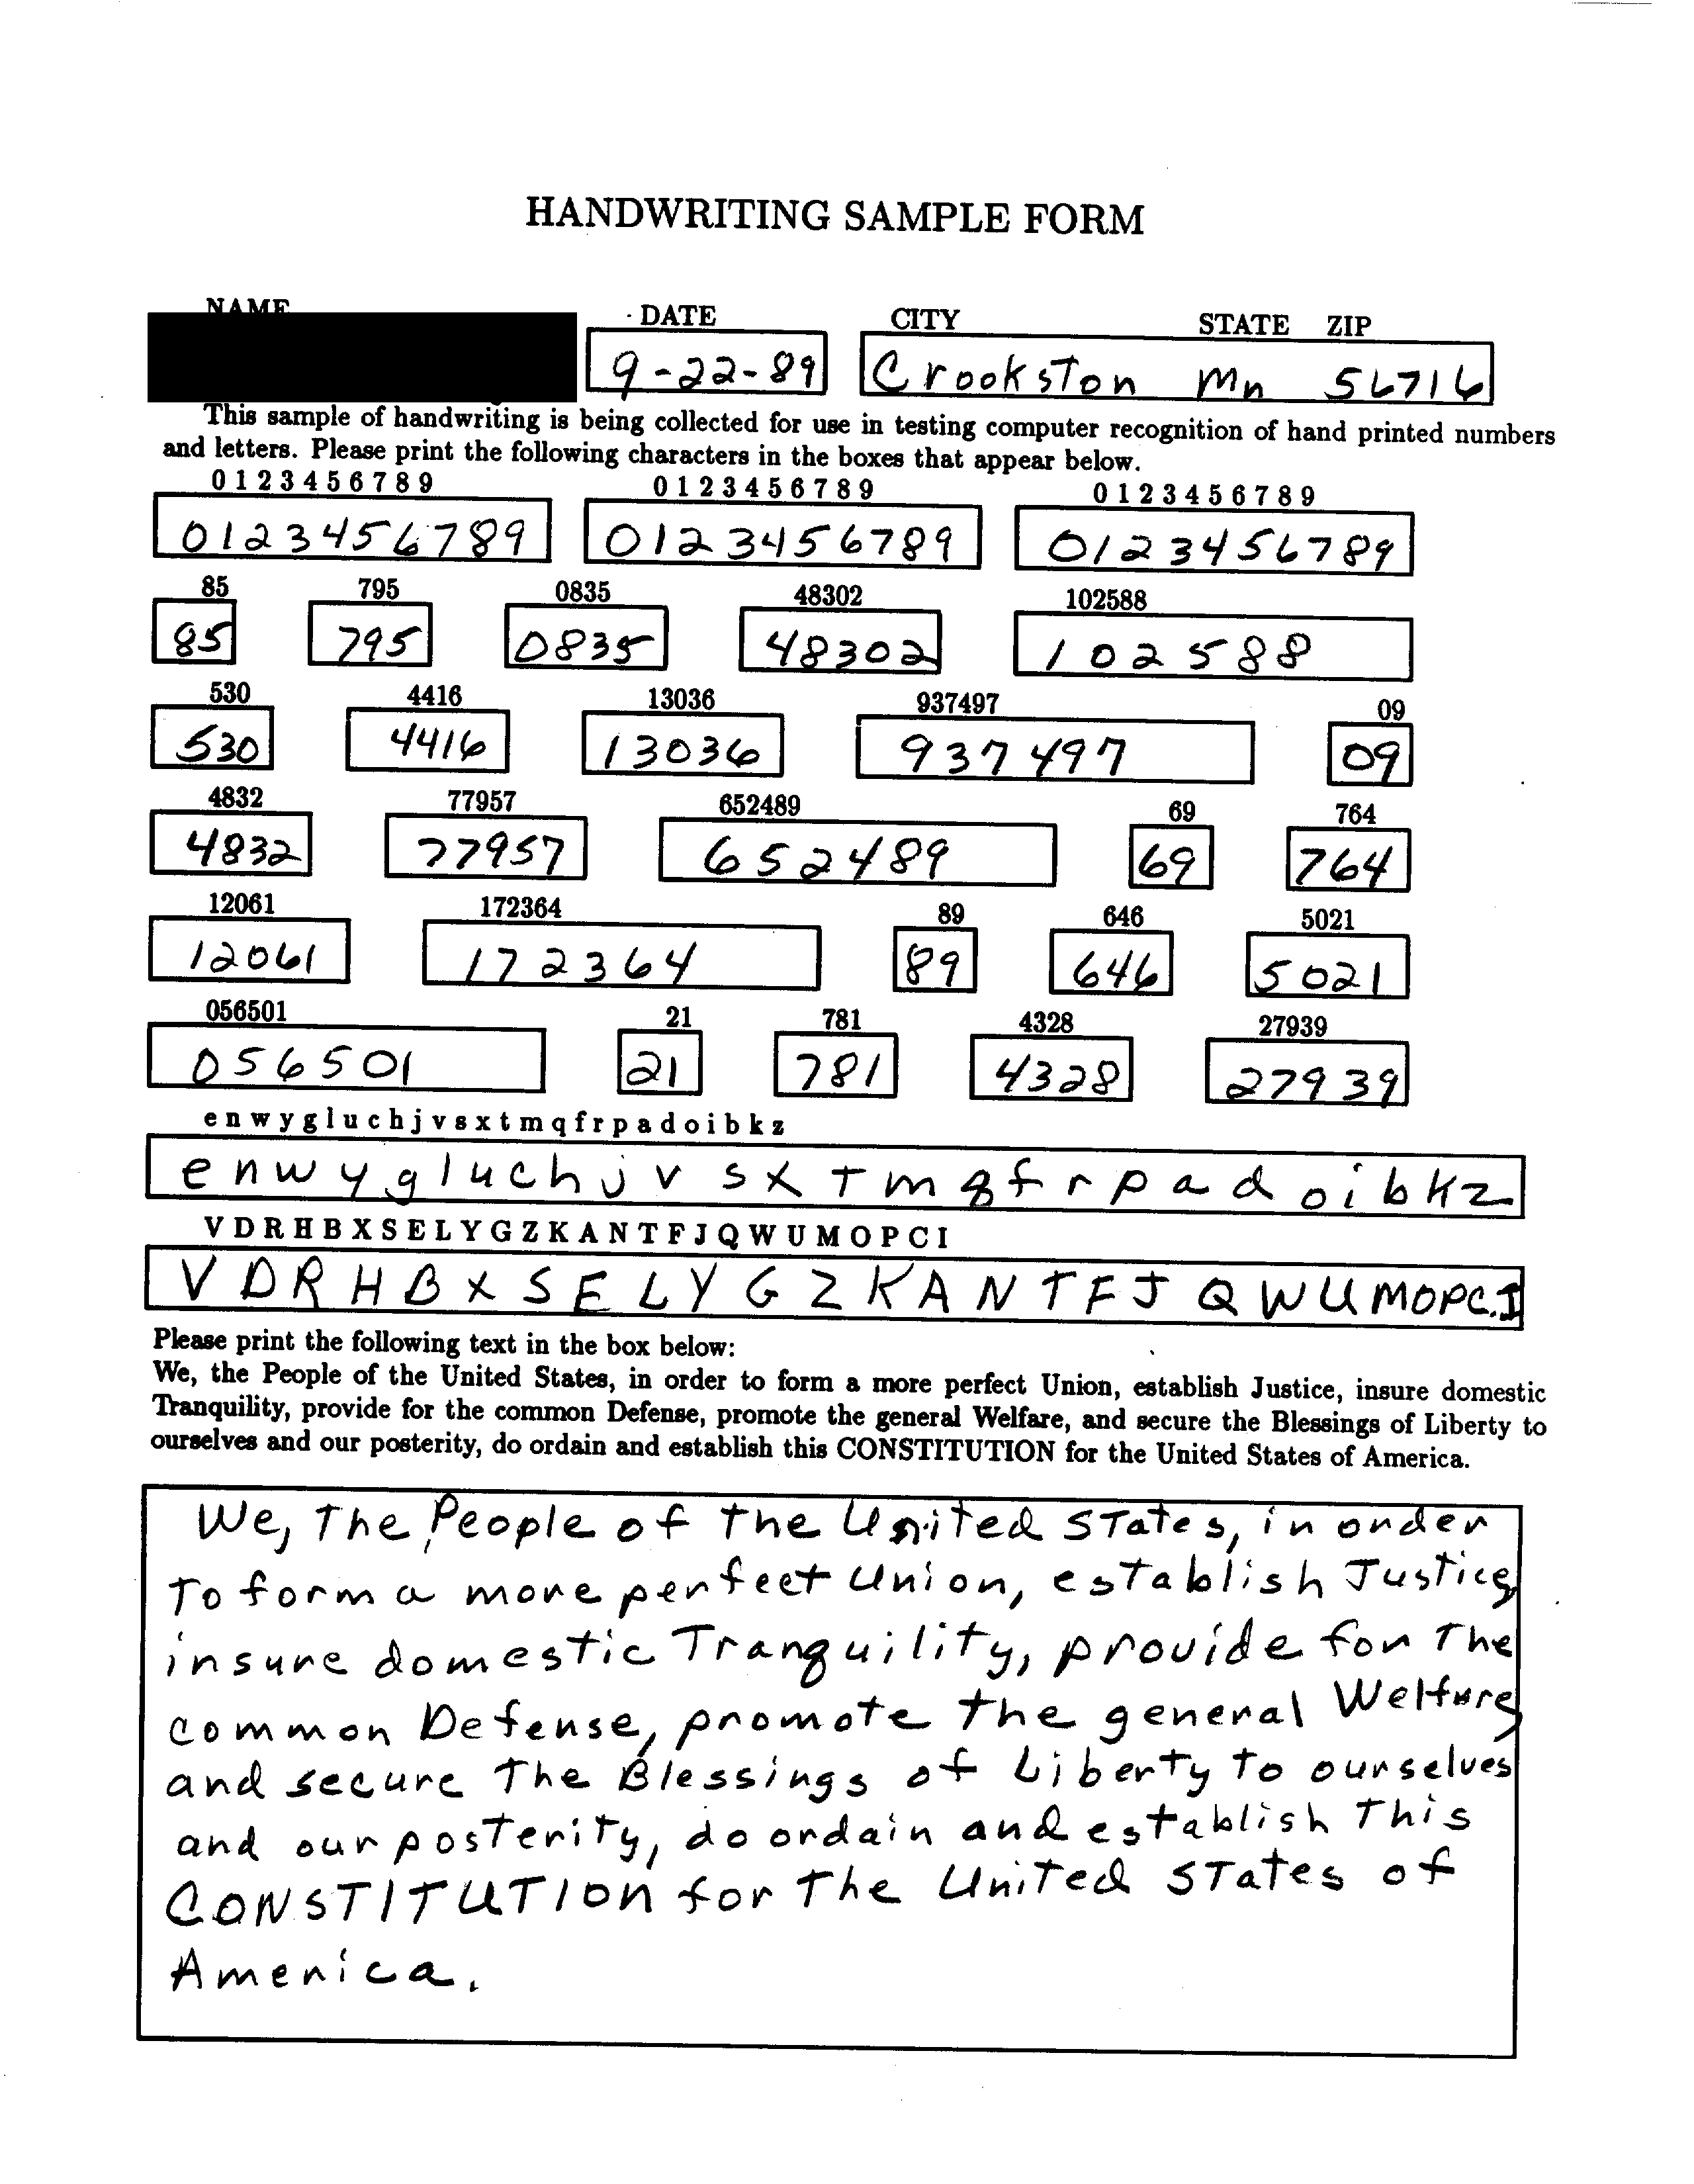 HANDWRITING SAMPLE FORM
NAME DATE CITY STATE ZIP
9-22-89 Crookston Mn 56716
This sample of handwriting is being collected for use in testing computer recognition of hand printed numbers
and letters. Please print the following characters in the boxes that appear below.
0 1 2 3 4 5 6 7 8 9 0 1 2 3 4 5 6 7 8 9 0 1 2 3 4 5 6 7 8 9
0123456789 0123456789 0123456789
85 795 0835 48302 102588
85 795 0835 48302 102588
530 4416 13036 937497 09
530 4416 13036 937497 09
4832 77957 652489 69 764
4832 77957 652489 69 764
12061 172364 89 646 5021
12061 172364 89 646 5021
056501 21 781 4328 27939
056501 21 781 4328 27939
e n w y g l u c h j v s x t m q f r p a d o i b k z
e n w y g l u c h j v s x t m q f r p a d o i b k z
V D R H B X S E L Y G Z K A N T F J Q W U M O P C I
V D R H B X S E L Y G Z K A N T F J Q W U M O P C I
Please print the following text in the box below:
We, the People of the United States, in order to form a more perfect Union, establish Justice, insure domestic
Tranquility, provide for the common Defense, promote the general Welfare, and secure the Blessings of Liberty to
ourselves and our posterity, do ordain and establish this CONSTITUTION for the United States of America.
We, the People of the United States, in order
to form a more perfect Union, establish Justice,
insure domestic Tranquility, provide for the
common Defense, promote the general Welfare,
and secure the Blessings of Liberty to ourselves
and our posterity, do ordain and establish this
CONSTITUTION for the United States of
America.